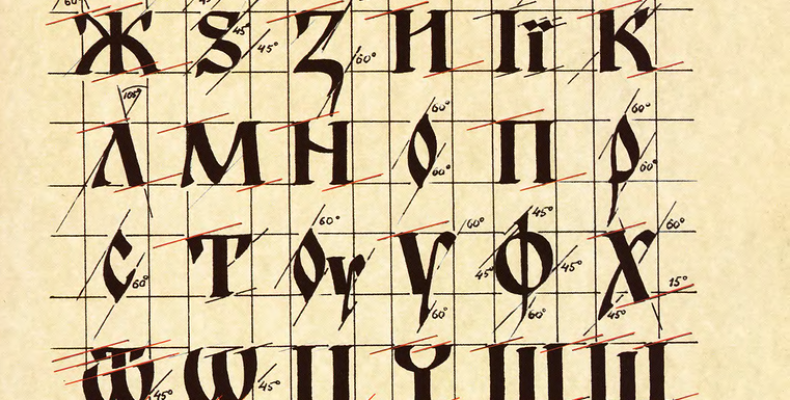 60°
Ж Ѕ 45° 45° З 60° И Її К
105° 60° 60°
Л М Н О 60° П Р 60°
60° 60° 45° 60°
С 60° Т Оу Ѵ 60° 45° Ф 45° 60° Х 45° 15°
Ѿ 45° Ѡ 45° Ц Ч Ш Щ